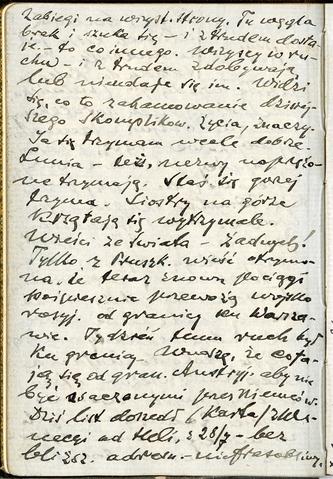 Zabiegi na wszyst. strony. Tu węgla
brak i szuka się – i z trudem dosta
je – to co innego. Wszyscy w ru-
chu – i z trudem zdobywają
lub nie udaje się im. Widzi
się, co to zahamowanie dzisiej-
szego skomplikow. życia, znaczy.
Ja się trzymam wcale dobrze.
Lunia – też, nerwy naprężo-
ne trzymają. Staś się gorzej
trzyma. Siostry na górze
krzątają się wytrwale.
Wieści ze świata – żadnych!
Tylko z Pruszk. wieść otrzyma-
na, że teraz znowu pociągi
pośpiesznie przewożą wojsko
rosyj. od granicy ku Warsza-
wie. Tydzień temu ruch był
ku granicy. Wnoszę, że cofa-
ją się od gran. Austryj. aby nie
być otoczonymi przez Niemców.
Dziś list doszedł (karta) z
od Heli, z 28/7 – bez
bliższ. adresu